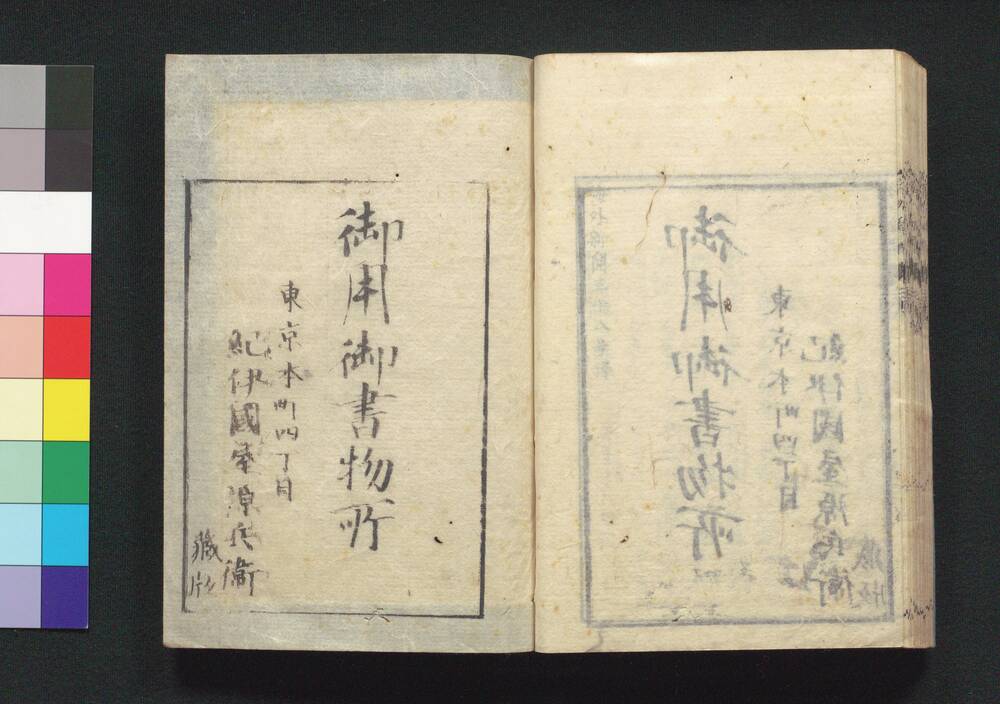 御用御書物所
東京本町四丁目
紀伊國屋源兵衛
蔵版